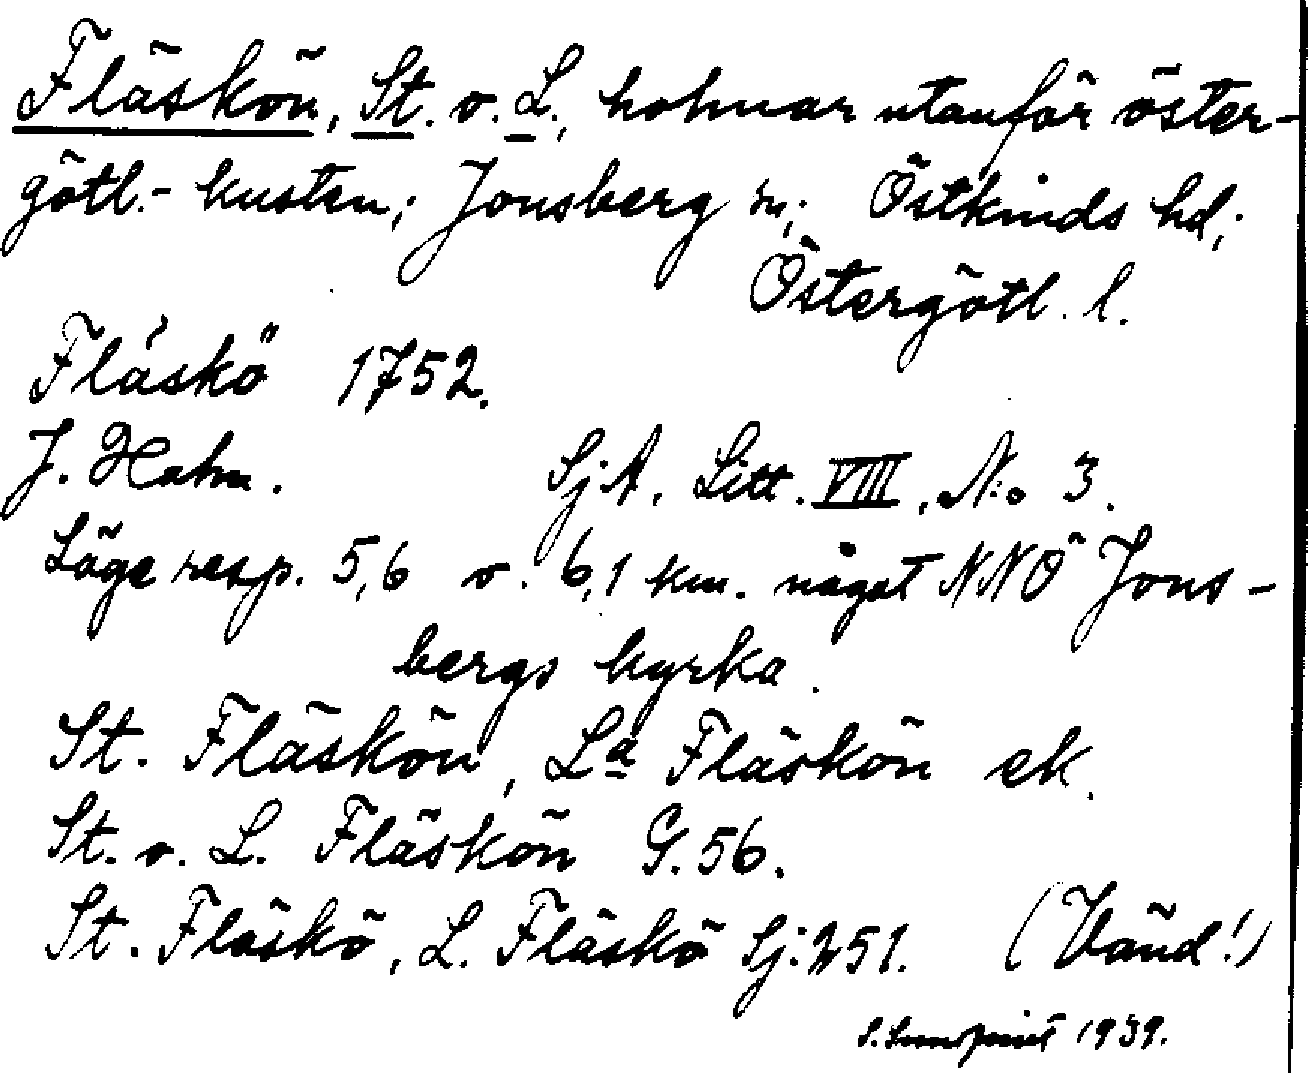 Fläskön, St. o. L., holmar utanför öster-
götl.- kusten; Jonsberg sn; Östkinds hd;
Östergötl. l.
Fläskö 1752.
J. Hahn. SjA. Litt. VIII. No 3.
Läge resp. 5,6 o. 6,1 km. något NNÖ Jons-
bergs kyrka.
St. Fläskön, La Fläskön ek.
St. o. L. Fläskön G. 56.
St. Fläskö, L. Fläskö Sj: 251. (Vänd!)
1939.